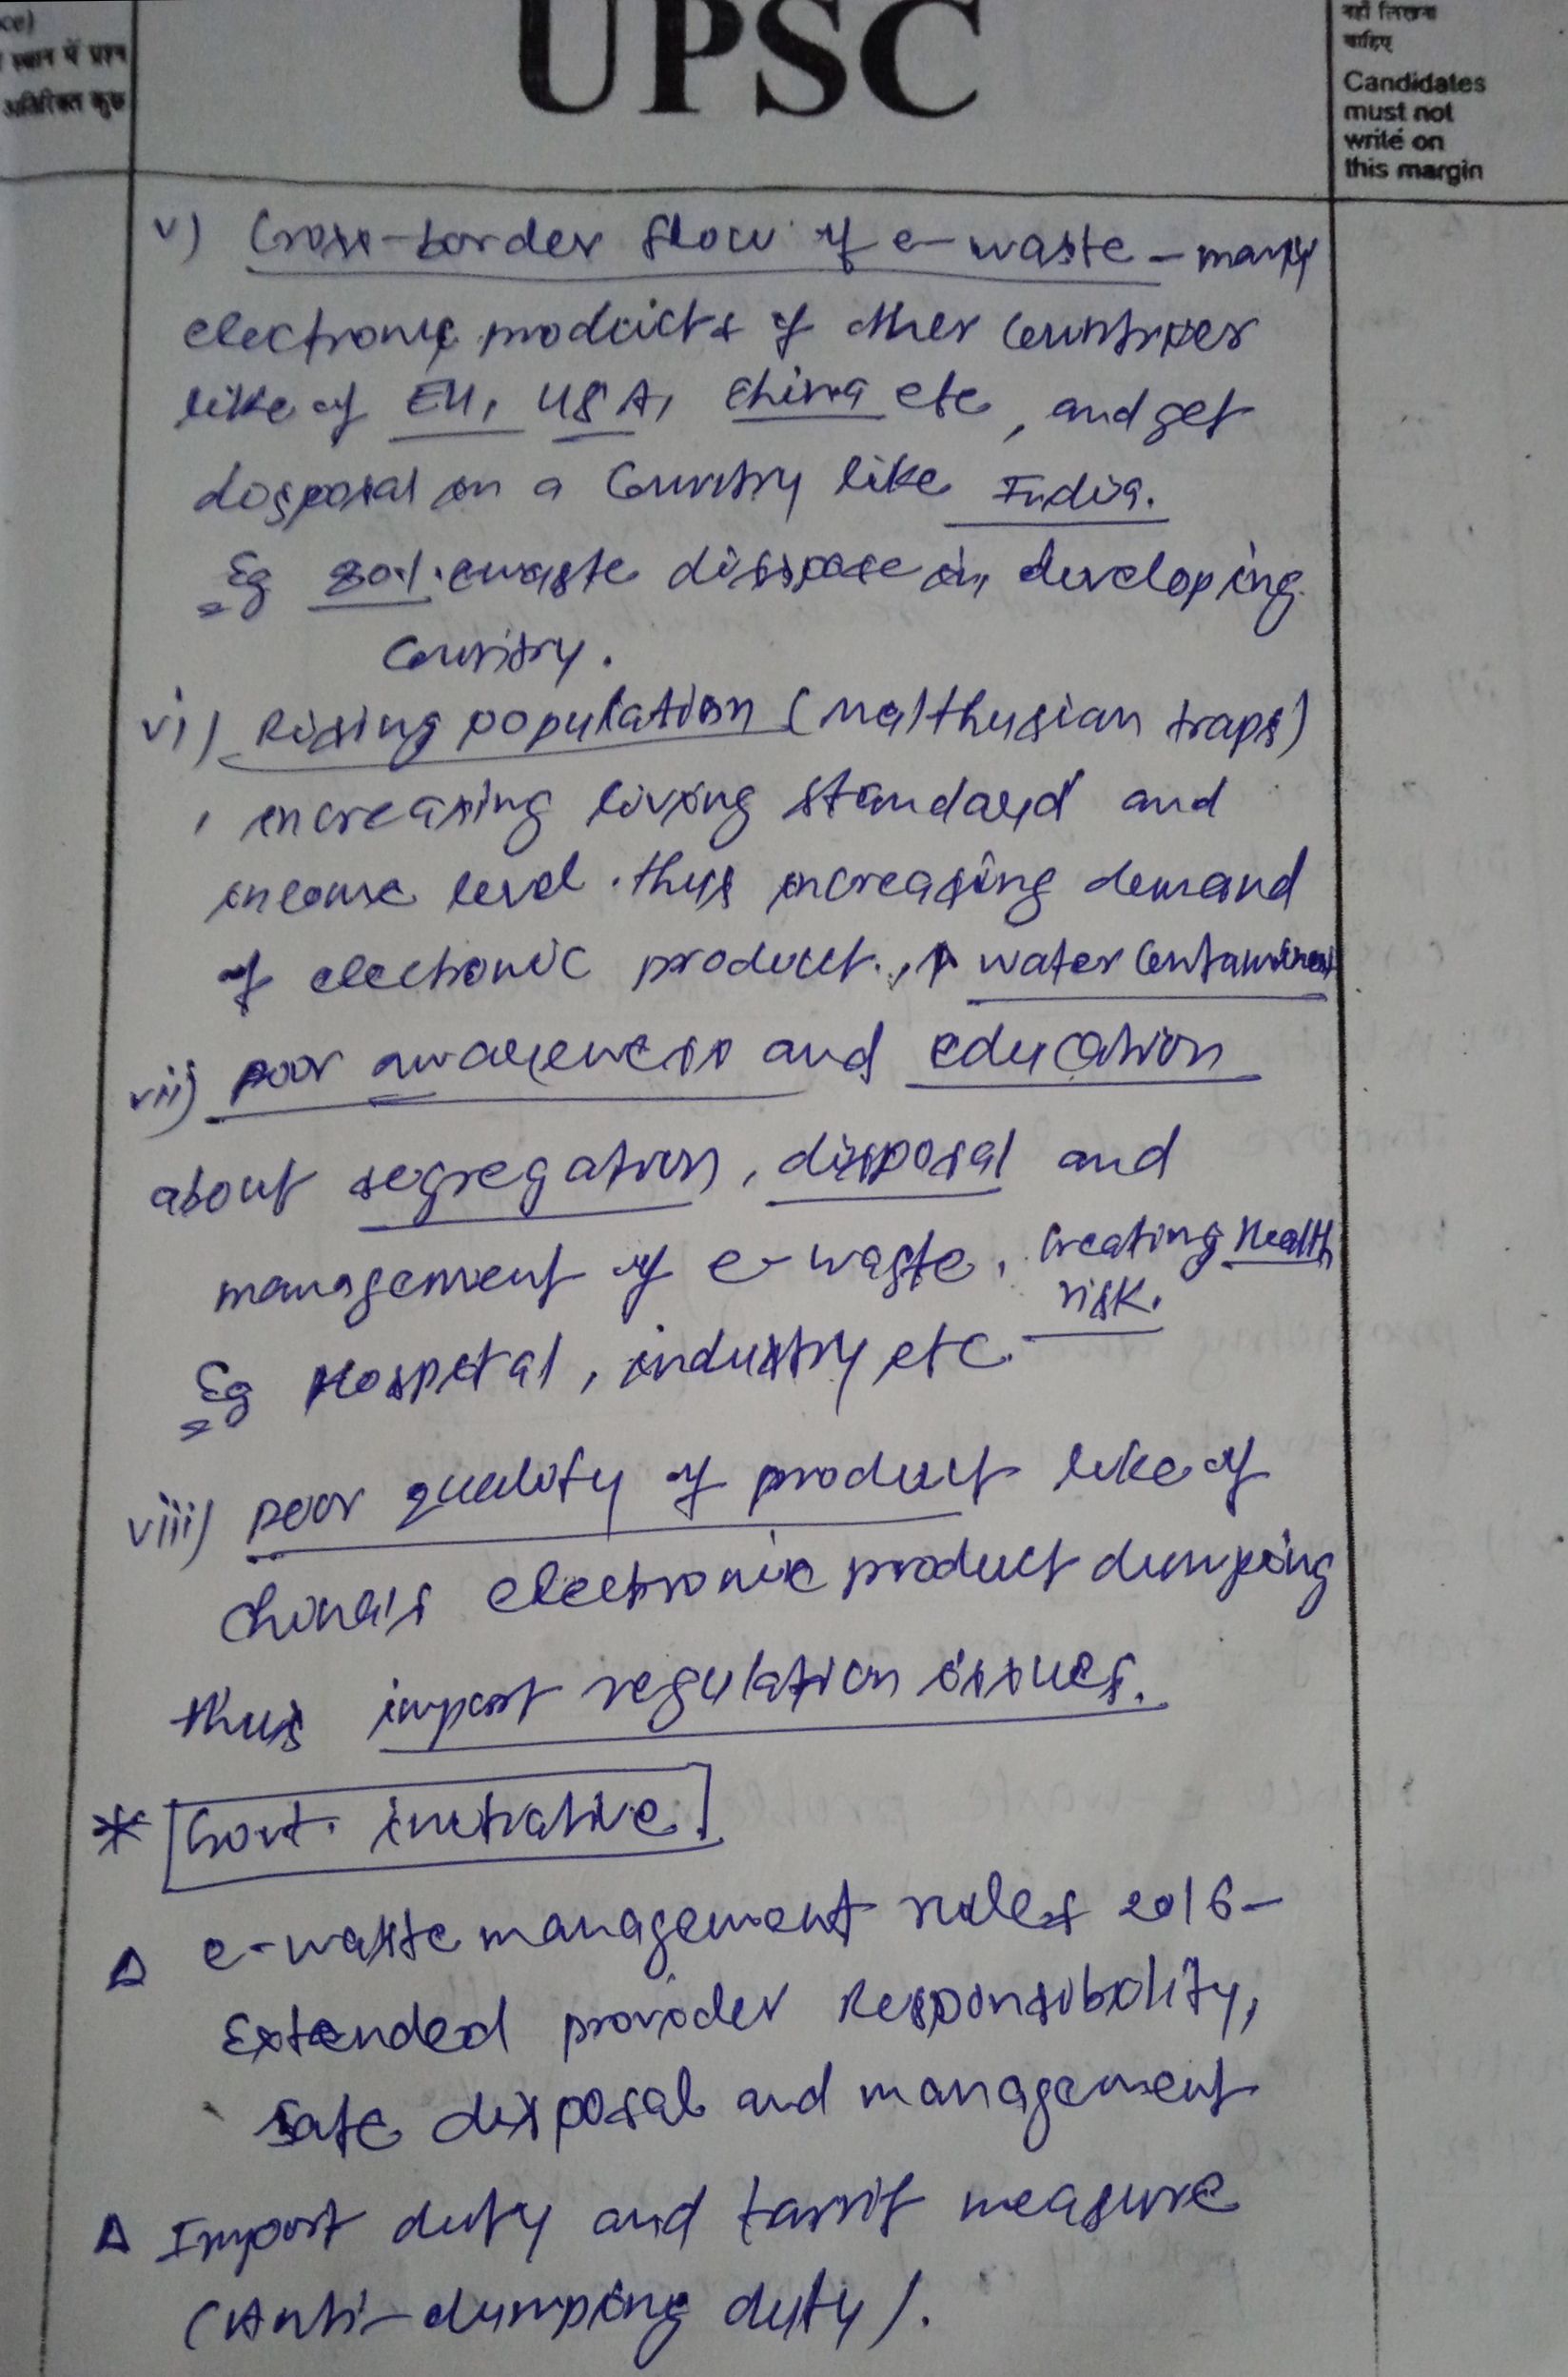 ce)
स्थान में प्रश्न
अतिरिक्त कुछ
UPSC
नहीं लिखना
चाहिए
Candidates
must not
write on
this margin
v) Cross-border flow of e-waste - many
electronic products of other countries
like of EU, USA, China etc, and get
dosposal in a country like India.
Eg 80%. ewaste disspose in developing
country.
vi) Rising population (Malthusian traps)
, increasing living standard and
income level. thus increasing demand
of electronic product., ↑ water
vii) poor awareness and education
about segregation, disposal and
management of e-waste, creating Health
risk.
Eg Hospital, industry etc.
viii) poor quality of product like of
China's electronic product dumping
thus import regulation issues.
* Govt. initiative.
Δ e-waste management rules 2016-
Extended provider Responsibility,
safe disposal and management
Δ Import duty and tarrif measure
(Anti-dumping duty).